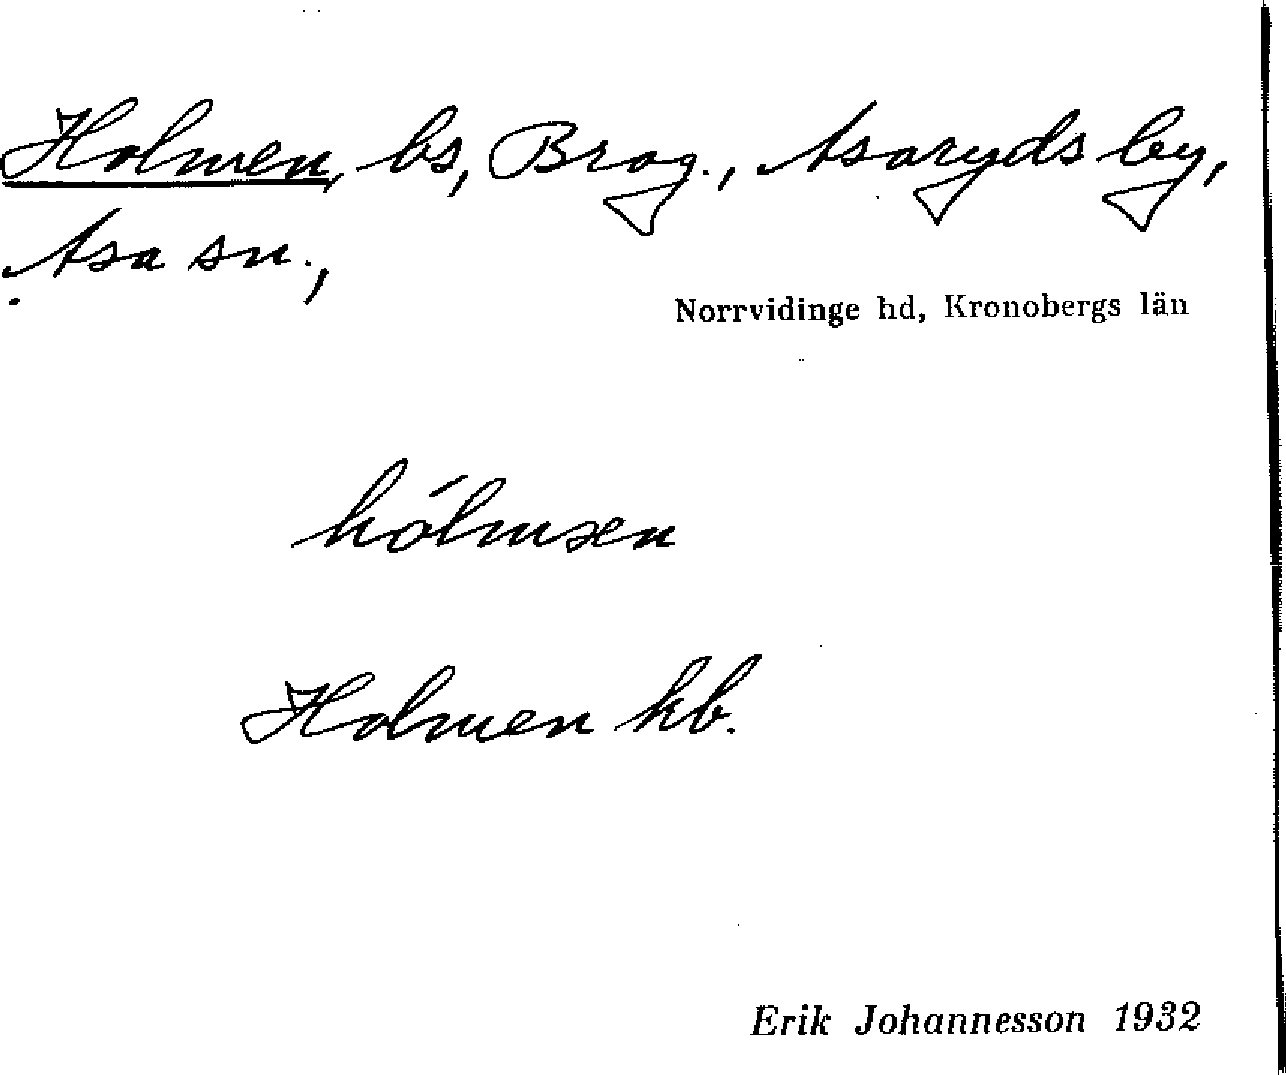 Holmen, bs, Brag., Asaryds by,
Asa sn.,
Norrvidinge hd, Kronobergs län
hólmæn
Holmen kb.
Erik Johannesson 1932